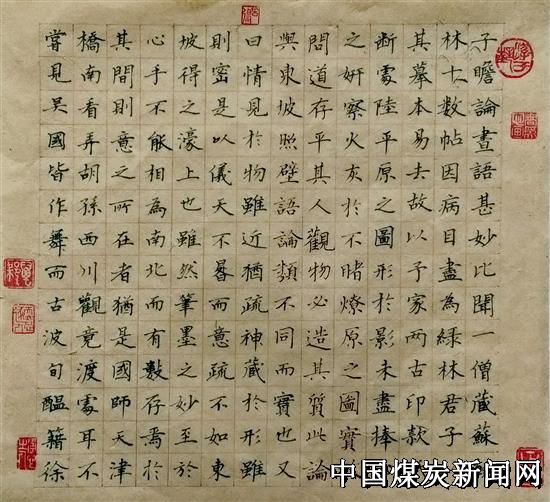 子瞻論畫語甚妙比聞一僧藏蘇
林十數帖因病目盡為緑林君子
其摹本易去故以予家两古印款
断處陸平原之圖形於影未盡捧
之妍察火灰於不睹燎原之圖實
問道存乎其人觀物必造其質此論
與東坡照壁語論類不同而實也又
曰情見於物雖近猶疏神藏於形雖
則密是以儀天不晷而意疏不如東
坡得之濠上也雖然筆墨之妙至於
心手不能相為南北而有數存焉於
其間則意之所在者猶是國師天津
橋南看弄胡孫西川觀竟渡處耳不
嘗見吳國皆作舞而古波旬醞籍徐
中国煤炭新闻网